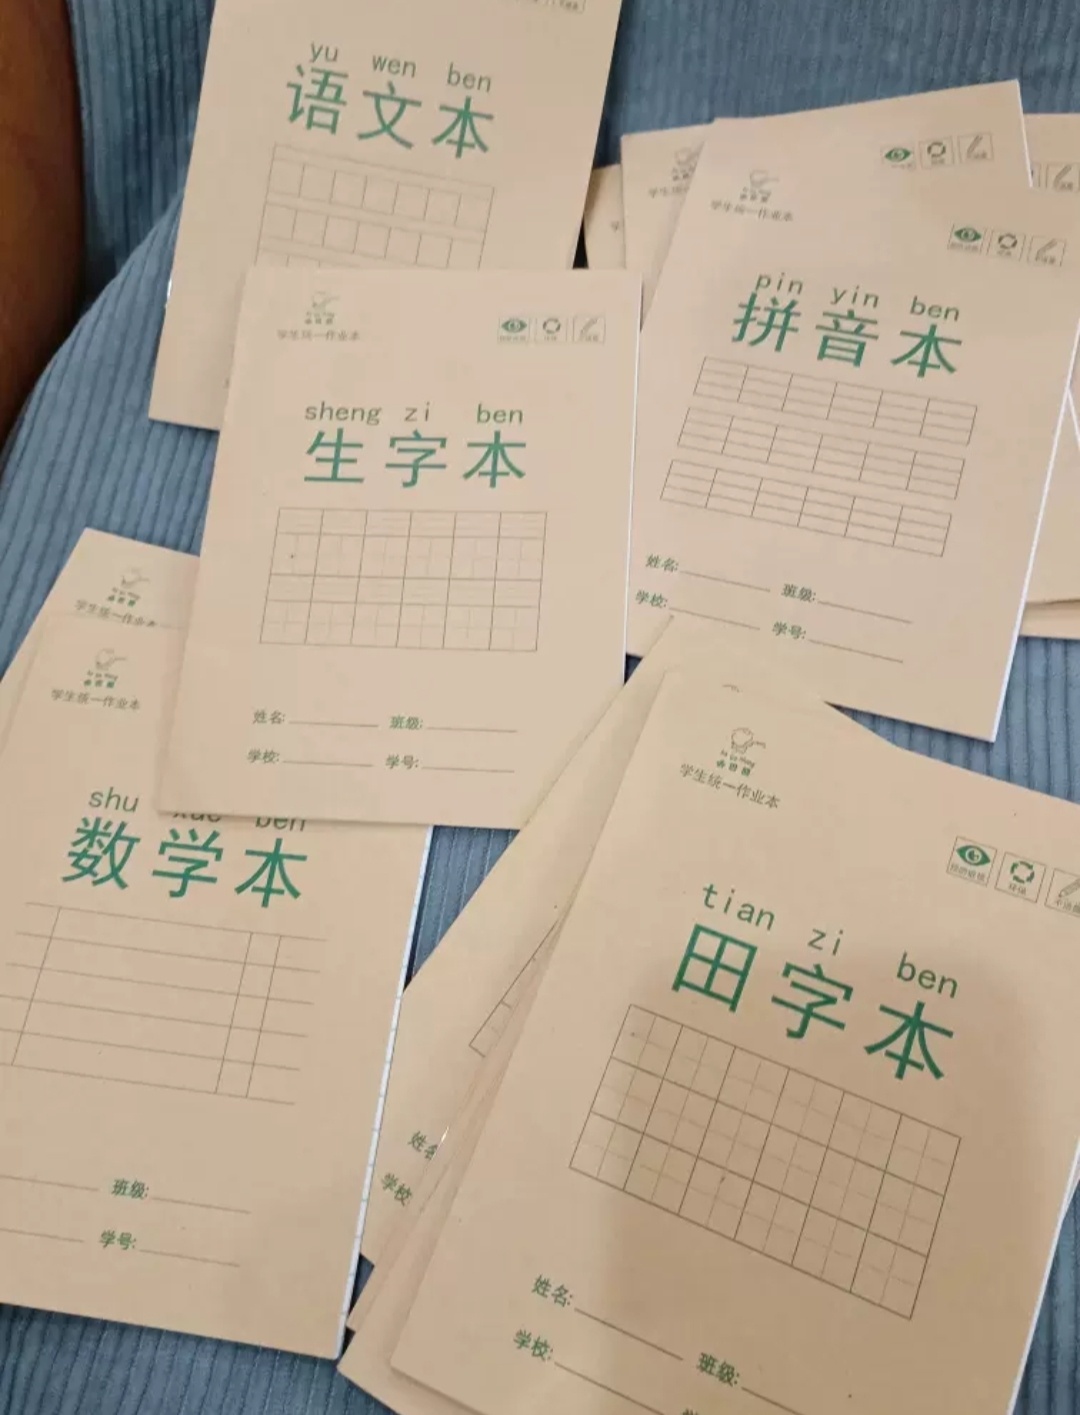 yu wen ben
语文本
学生统一作业本
pin yin ben
拼音本
姓名: 班级:
学校: 学号:
学生统一作业本
sheng zi ben
生字本
姓名: 班级:
学校: 学号:
学生统一作业本
学生统一作业本
shu xue ben
数学本
班级:
学号:
姓名
学校
学生统一作业本
tian zi ben
田字本
姓名:
班级:
学校: